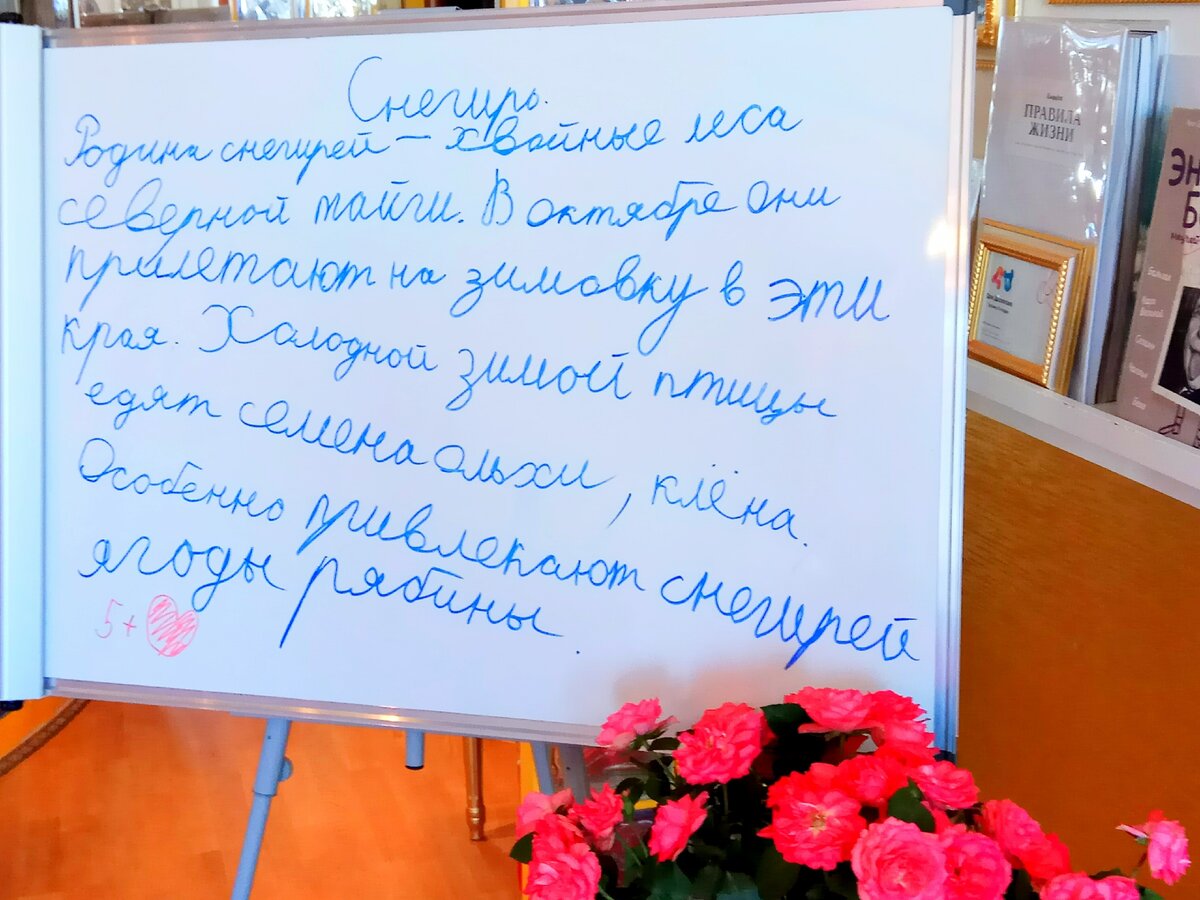 Снегирь.
Родина снегирей – хвойные леса
северной тайги. В октябре они
прилетают на зимовку в эти
края. Холодной зимой птицы
едят семена ольхи, клёна.
Особенно привлекают снегирей
ягоды рябины.
5+
ПРАВИЛА
ЖИЗНИ
ЭН
Б